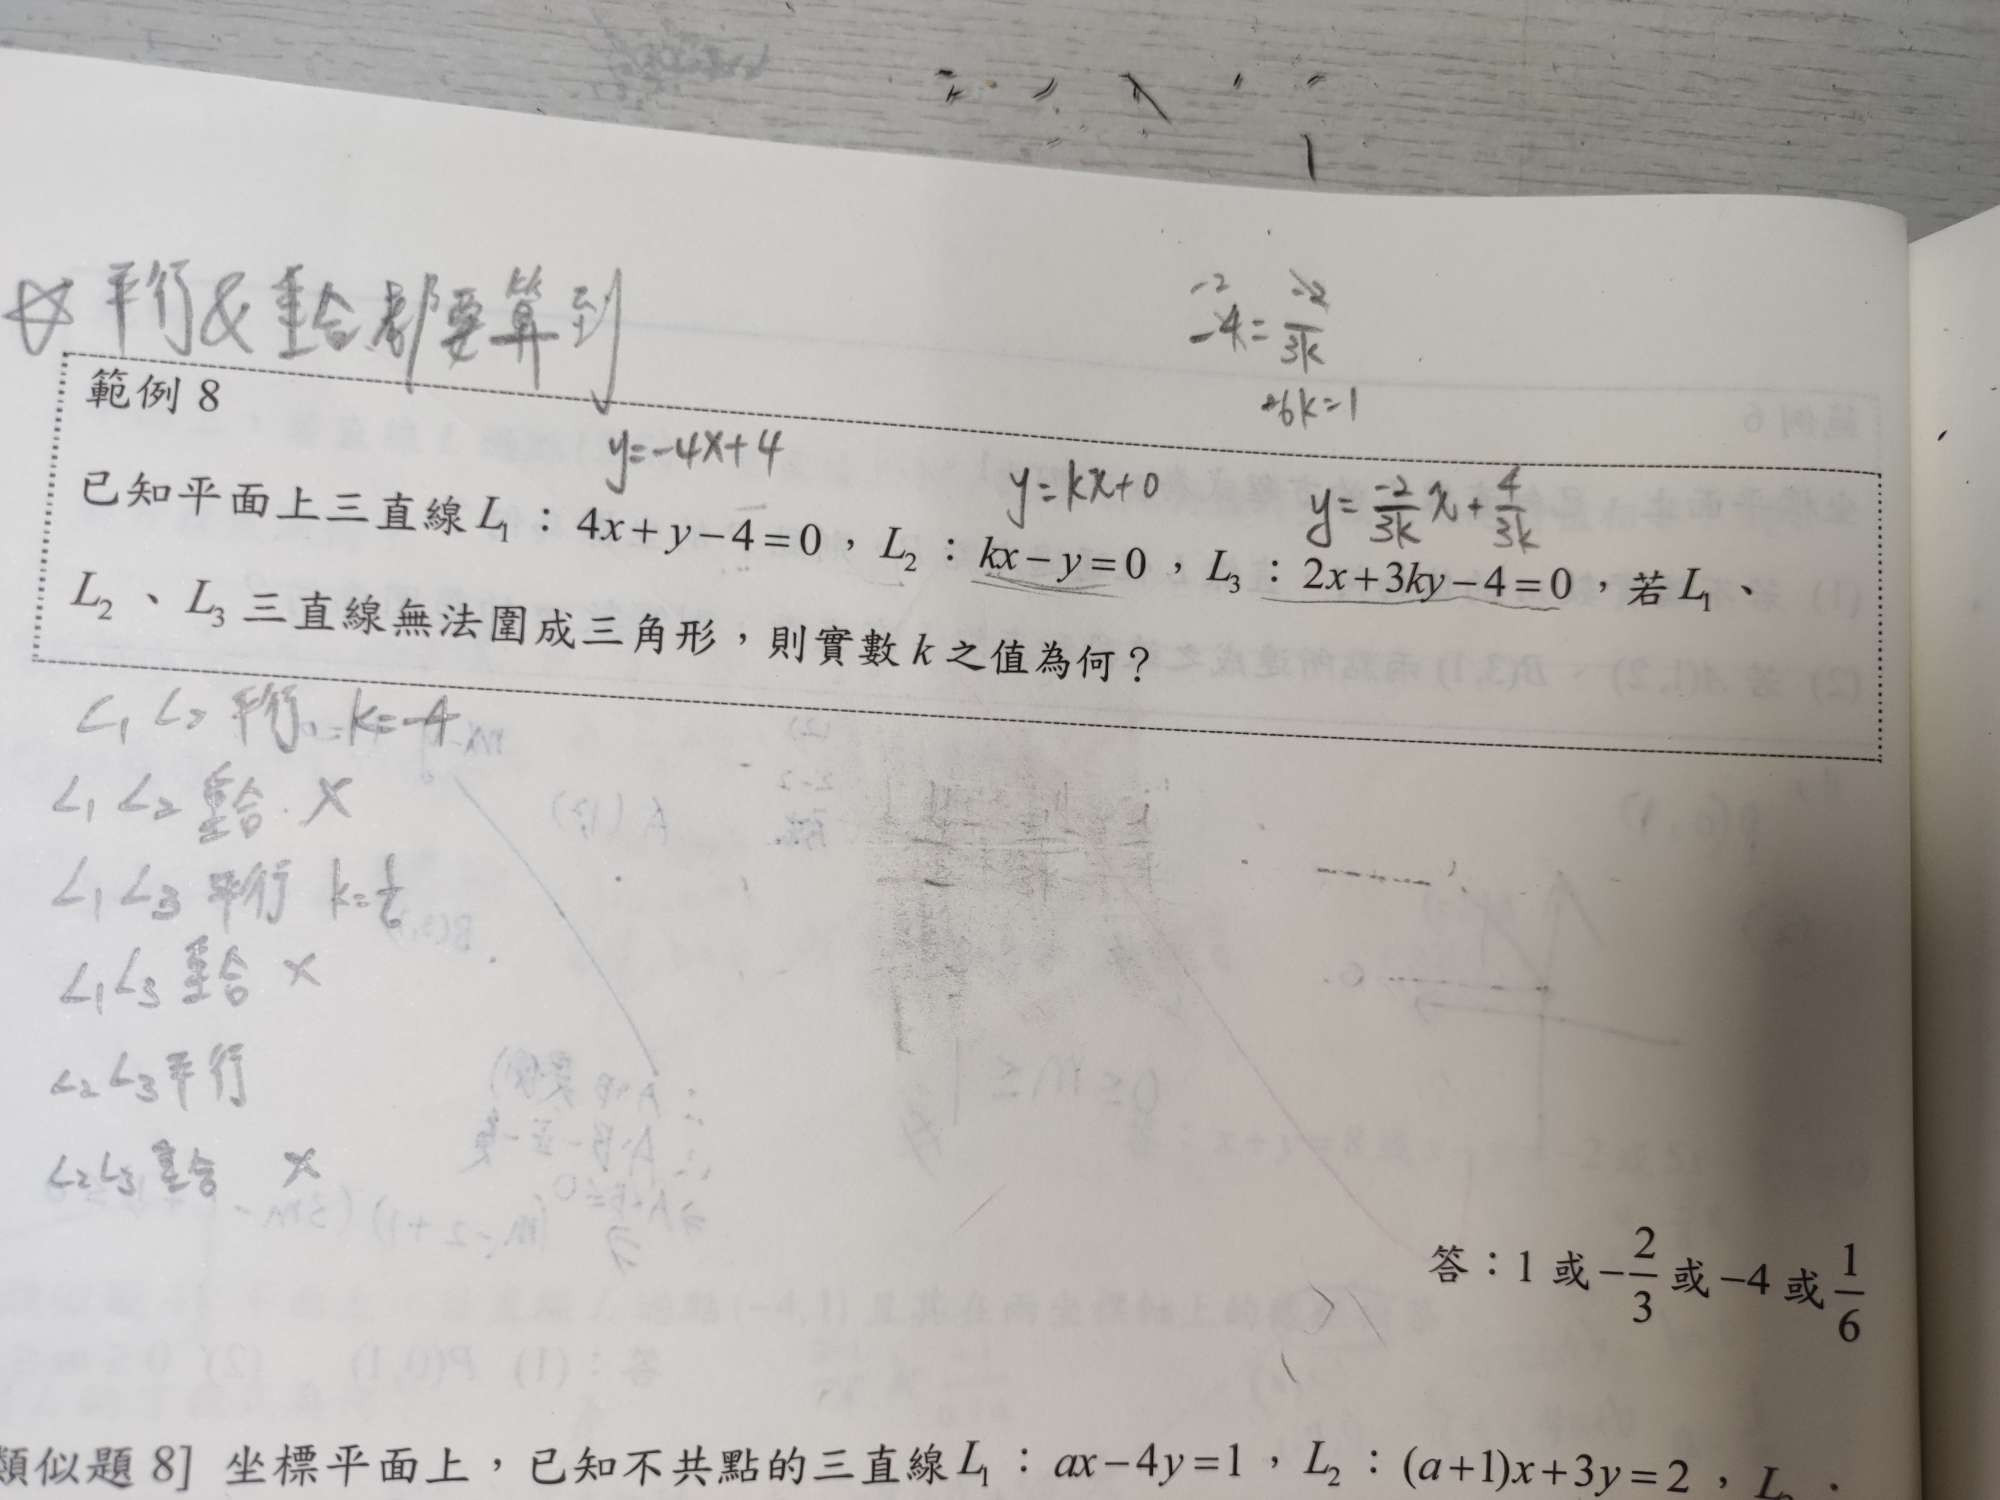 ☆ 平行&重合都要算到
-2 -2
-4=-2/3k
-6k=1
範例 8
y=-4x+4 y=kx+0 y=-2/3k x+4/3k
已知平面上三直線L₁：4x+y−4=0，L₂：kx−y=0，L₃：2x+3ky−4=0，若L₁、
L₂、L₃三直線無法圍成三角形，則實數k之值為何？
L₁ L₂ 平行 k=-4
L₁ L₂ 重合 X
L₁ L₃ 平行 k=1/6
L₁ L₃ 重合 X
L₂ L₃ 平行
L₂ L₃ 重合 X
答：1或−2/3或−4或1/6
類似題 8] 坐標平面上，已知不共點的三直線L₁：ax−4y=1，L₂：(a+1)x+3y=2，